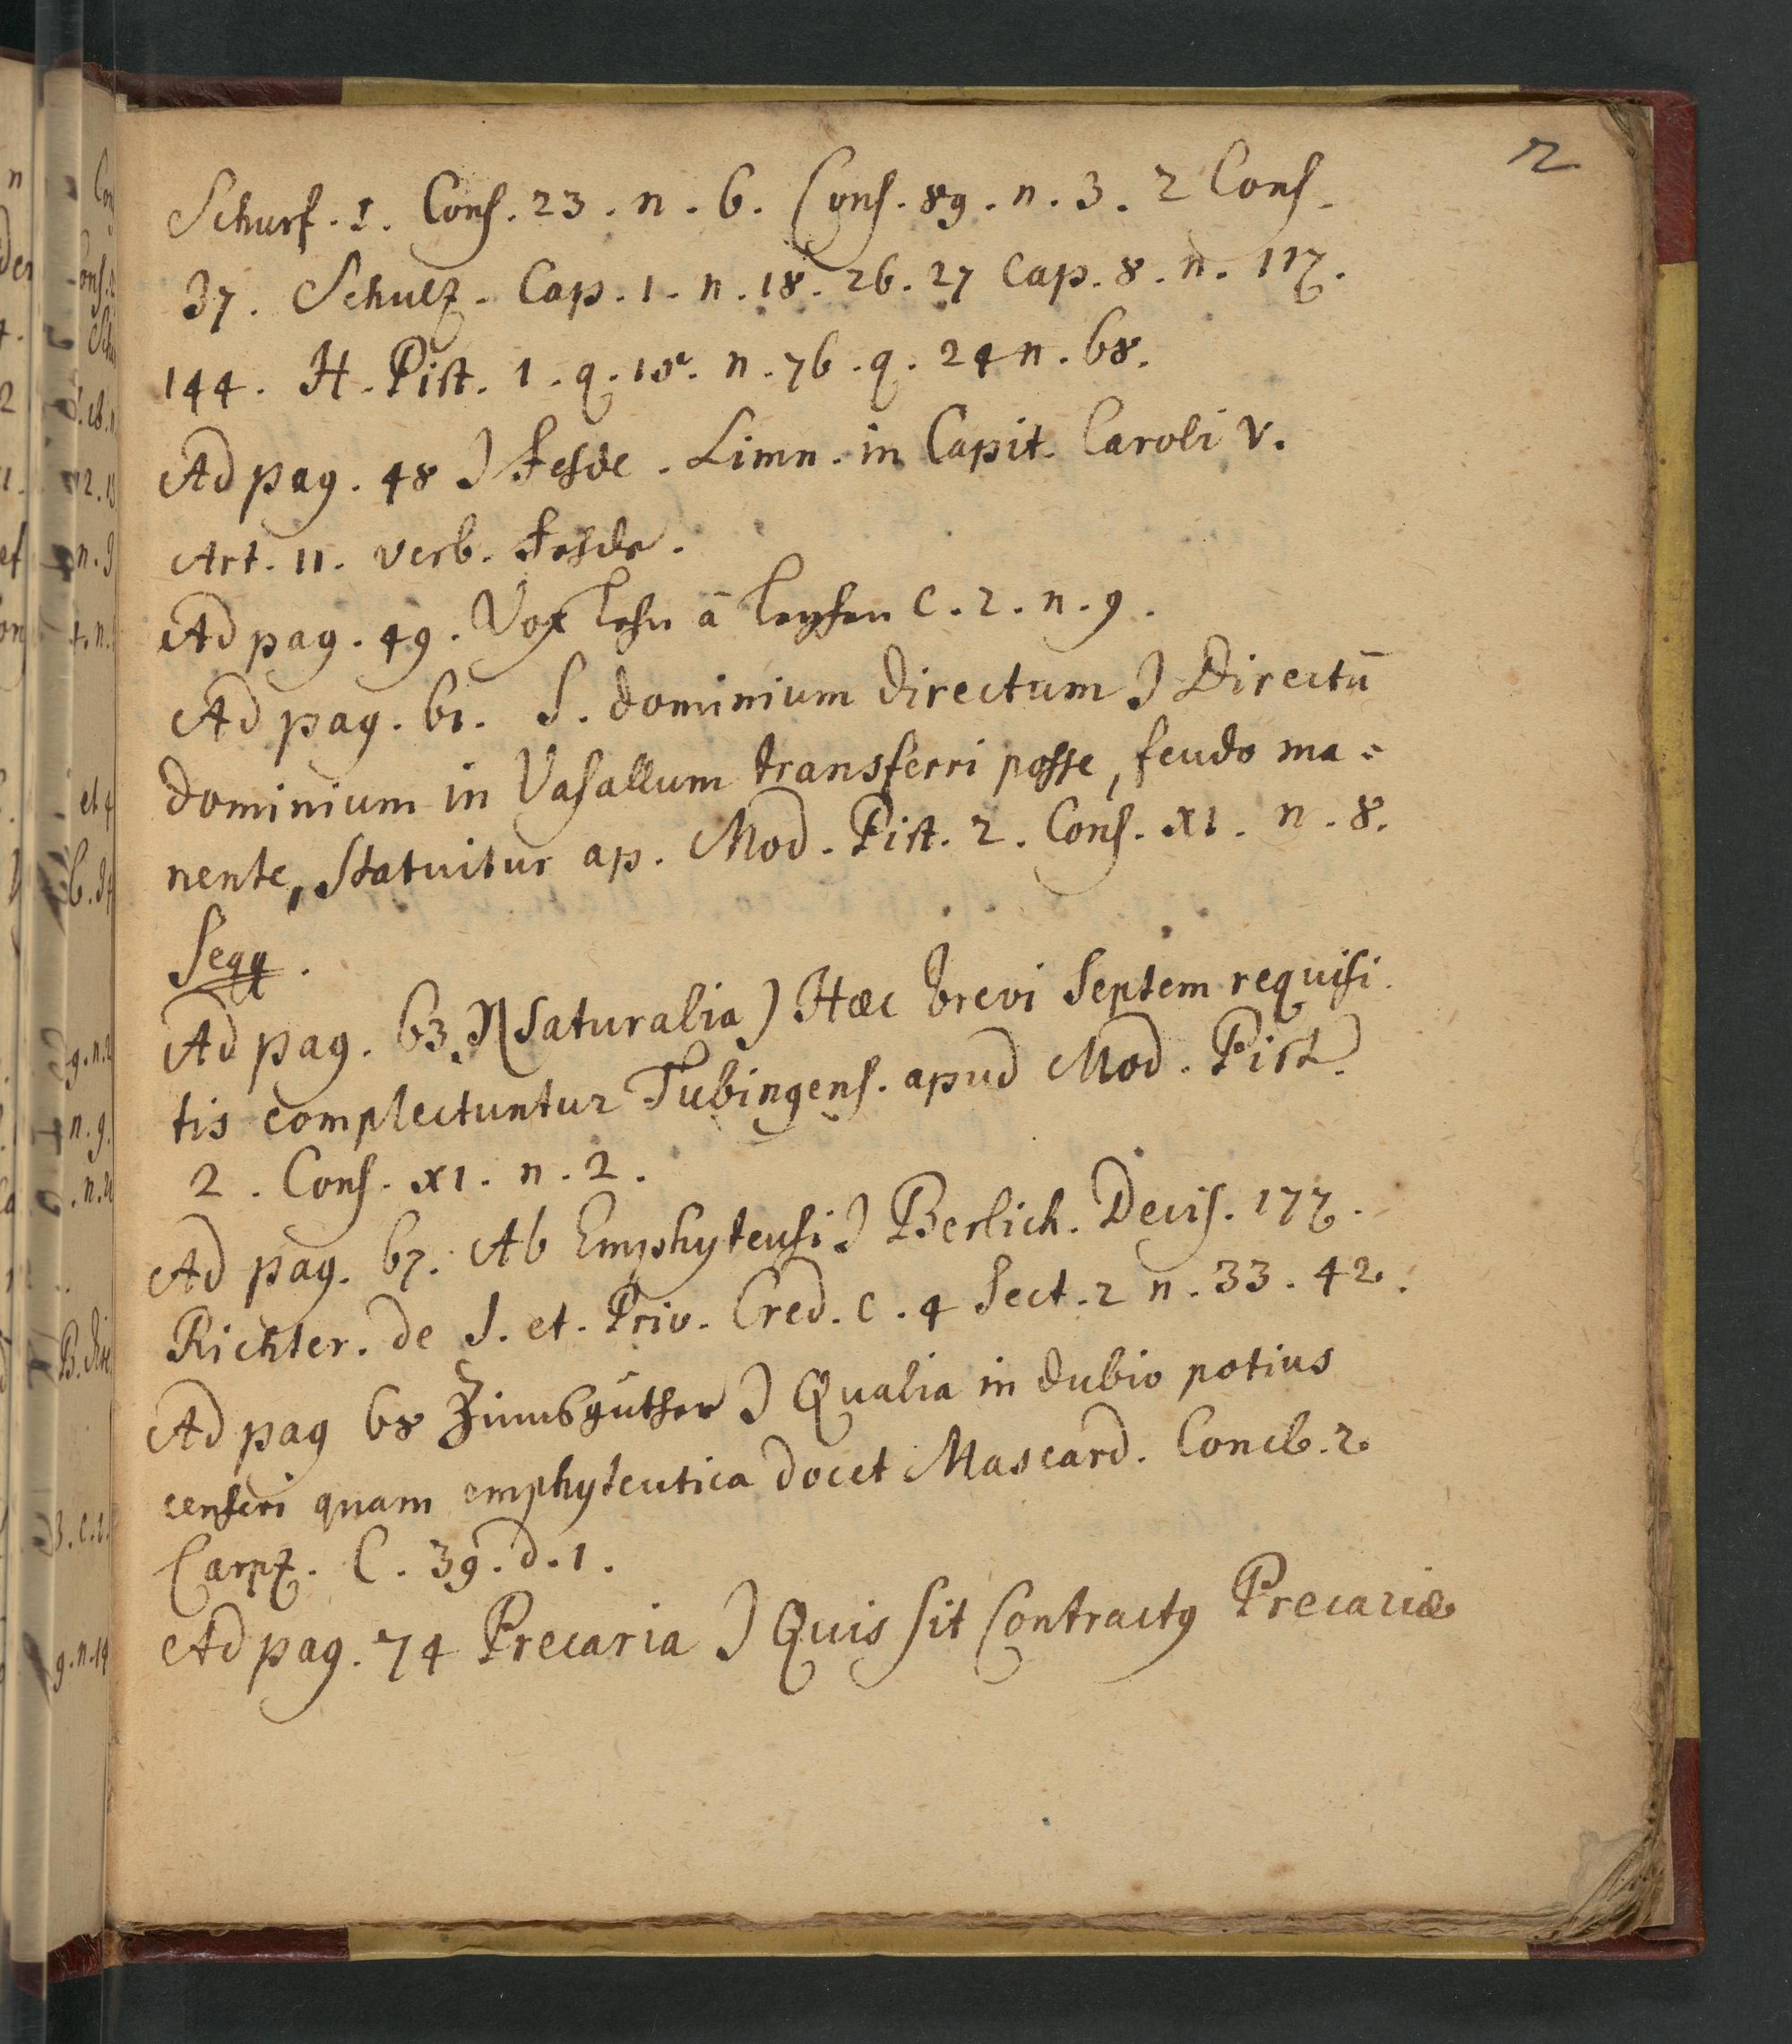 2
Schurf. 1. Cons. 23. n. 6. Cons. 89. n. 3. 2 Cons.
37. Schulz. Cap. 1. n. 18. 26. 27 Cap. 8. n. 117.
144. H. Pist. 1. q. 15. n. 76. q. 24 n. 68.
Ad pag. 48 ) Fehde. Limn. in Capit. Caroli V.
Art. 11. verb. Fehde.
Ad pag. 49. Vox Lehn â Leyhen C. 2. n. 9.
Ad pag. 61. S. dominium directum ) Directū
dominium in Vasallum transferri posse, feudo ma=
nente, Statuitur ap. Mod. Pist. 2. Cons. XI. n. 8.
Seqq.
Ad pag. 63. Naturalia ) Hæc brevi Septem requisi
tis complectuntur Tubingens. apud Mod. Pist.
2. Cons. XI. n. 2.
Ad pag. 67. Ab Emphyteusi ) Berlich. Decis. 177.
Richter. de J. et. Priv. Cred. C. 4 Sect. 2 n. 33. 42.
Ad pag 68 Zinnßgüther ) Qualia in dubio potius
censeri quam emphyteutica docet Mascard. Concl. 2
Carpz. C. 39. d. 1.
Ad pag. 74 Precaria ) Quis sit Contractus Precariæ